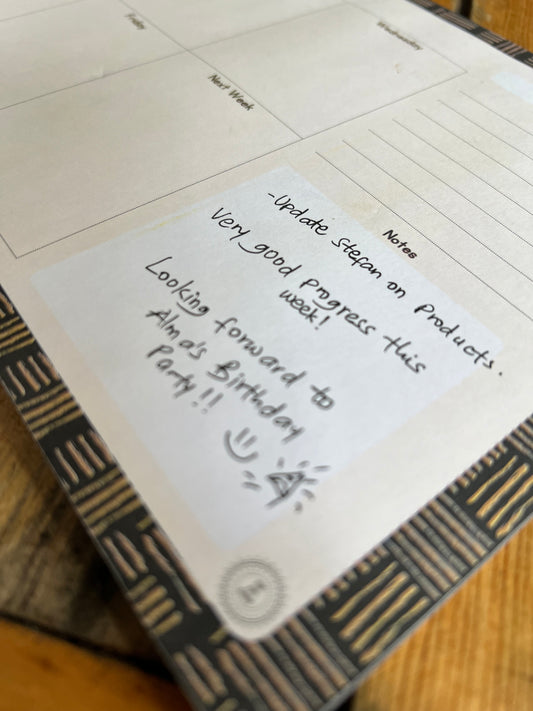 Friday
Wednesday
Next Week
Notes
-Update Stefan on Products.
Very good Progress this
week!
Looking forward to
Alma's Birthday
Party!!